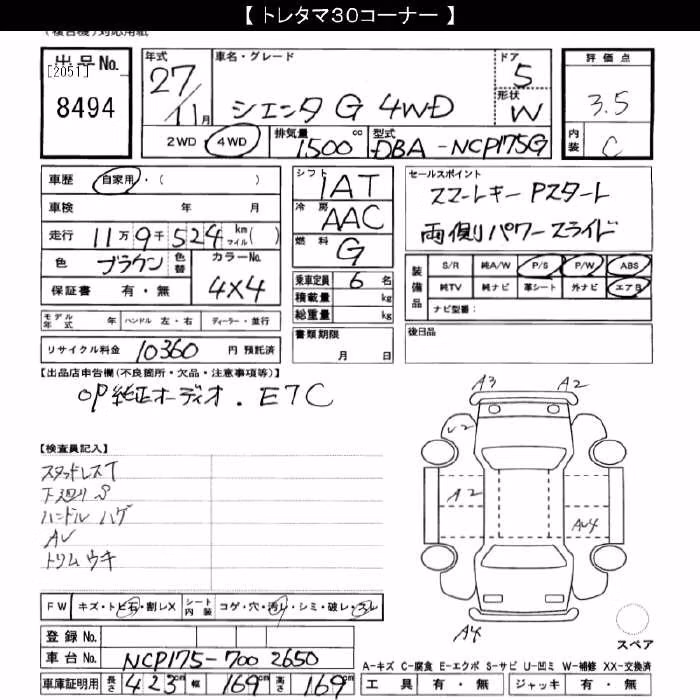 【 トレタマ30コーナー 】
(複合)対応用紙
出品No.
[2051]
8494
年式 27/11月
車名・グレード シエンタ G 4WD
ドア 5
形状 W
2WD 4WD
排気量 1500 cc
型式 DBA-NCP175G
評価点 3.5
内装 C
車歴 自家用・( )
車検 年 月
走行 11万9千524 km マイル( )
色 ブラウン 色替 カラーNo. 4X4
保証書 有・無
モデル年式 年 ハンドル 左・右 ディーラー・並行
リサイクル料金 10360 円 預託済
シフト 1AT
冷房 AAC
燃料 G
乗車定員 6 名
積載量 kg
総重量 kg
書類期限 月 日
セールスポイント
スマートキー Pスタート
両側パワースライド
装備品 S/R 純A/W P/S P/W ABS
純TV 純ナビ 革シート 外ナビ エアB
ナビ型番:
後日品
【出品店申告欄(不良箇所・欠品・注意事項等)】
OP純正オーディオ. E7C
A3 A2
【検査員記入】
スタッドレスT
下廻りS
ハンドル ハゲ
AV
トリム ウキ
U2
A2
AU4
A4
スペア
FW キズ・トビ石・割レX シート内装 コゲ・穴・汚レ・シミ・破レ・スレ
登録No.
車台No. NCP175-700 2650
車庫証明用 長さ 423cm 幅 169cm 高さ 169cm
A-キズ C-腐食 E-エクボ S-サビ U-凹ミ W-補修 XX-交換済
工具 有・無 ジャッキ 有・無